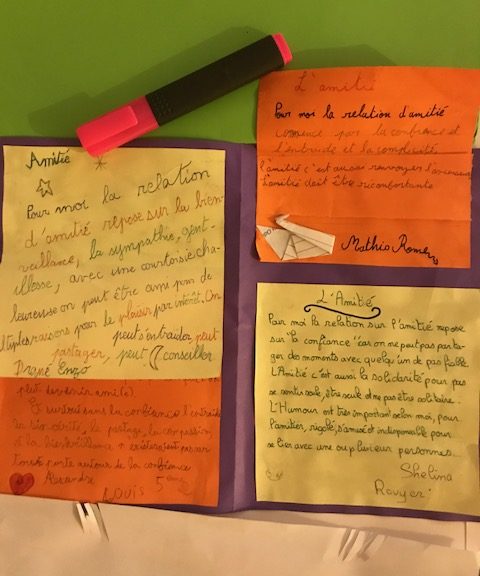 Amitié
Pour moi la relation
d'amitié repose sur la bien-
veillance, la sympathie, gent-
illesse, avec une courtoisie cha-
leureuse on peut être ami pour de
multiples raisons pour le plaisir par intérêt. On
peut s'entraider, peut
partager, peut conseiller
Enzo
peut devenir ami(e).
Et surtout sans la confiance l'entraide
la sincérité, le partage, la compassion,
et la bienveillance n'existeraient pas car
tout porte autour de la confiance
Alexandre
LOUIS 5ème
L'amitié
Pour moi la relation d'amitié
commence par la confiance et
l'entraide et la complicité.
l'amitié c'est aussi renvoyer l'ascenseur
L'amitié doit être réconfortante
Mathis Romero
L'Amitié
Pour moi la relation sur l'amitié repose
sur la confiance car on ne peut pas parta-
ger des moments avec quelqu'un de pas fiable.
L'Amitié c'est aussi la solidarité pour pas
se sentir seule, être seule et ne pas être solitaire.
L'Humour est très important selon moi, pour
l'amitié, rigolé, s'amusé et indispensable pour
se lier avec une ou plusieur personnes.
Shelina
Rouyer